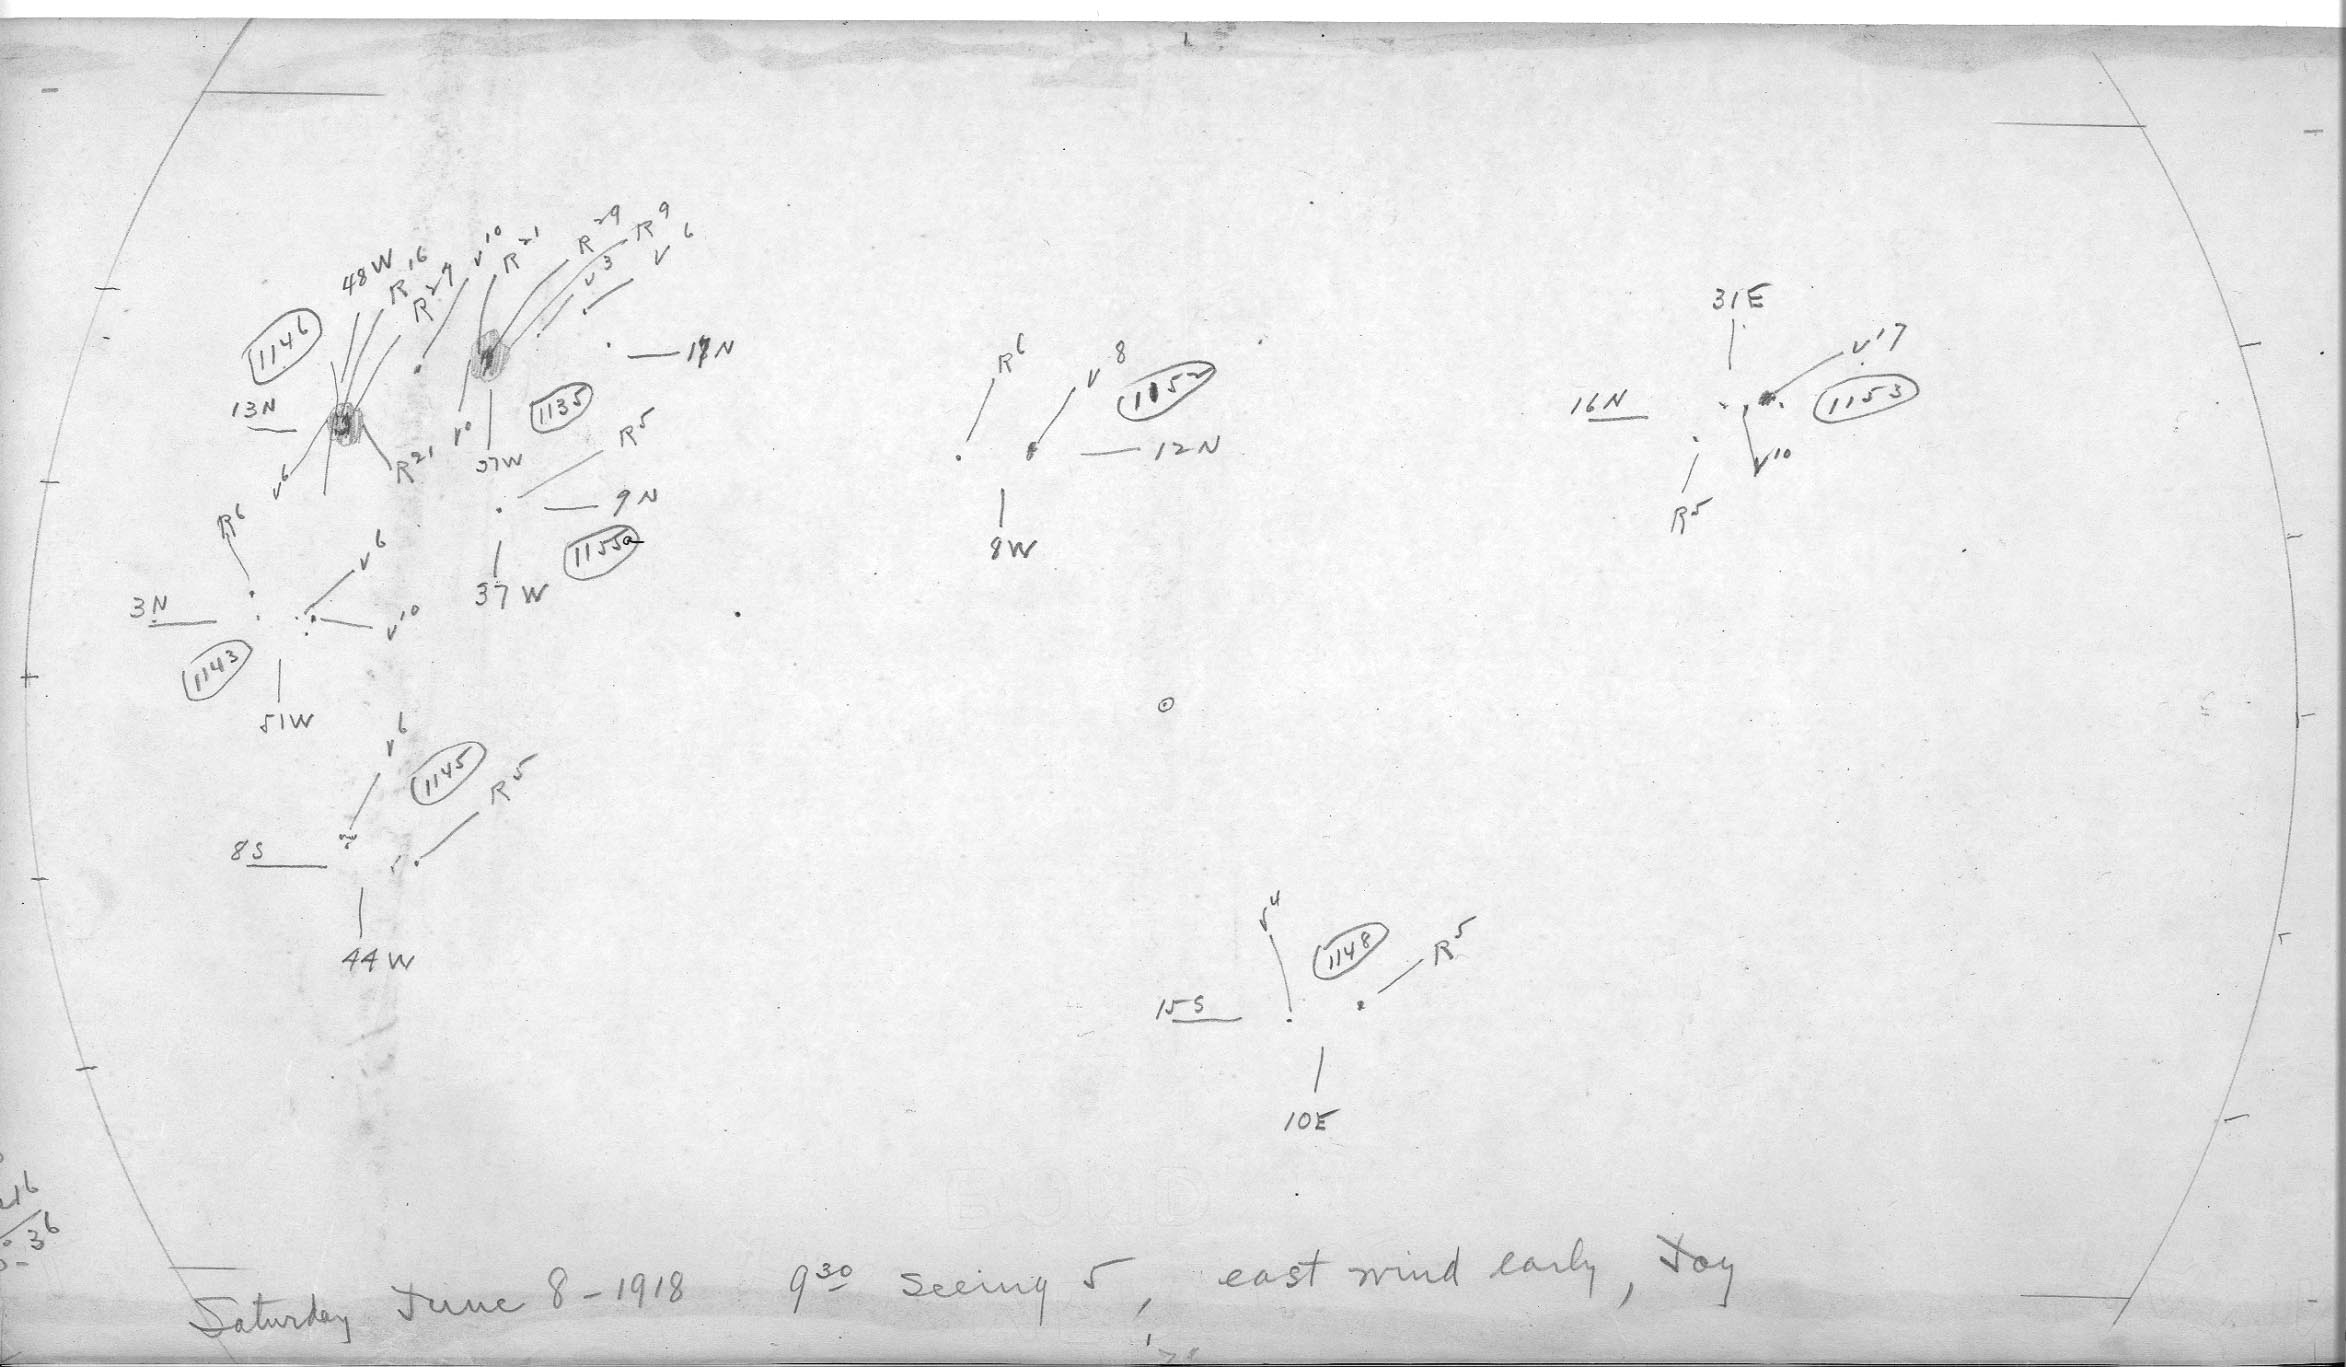 48W R16 R27 V10 R21 R29 R9 V6
V3
1146
13N
17N
1135
R21
V6
37W
R5
9N
1155a
37W
R6
V6
3N
V10
1143
51W
V6
1145
R5
8S
44W
R6 V8
1152
12N
8W
31E
V17
16N
1153
V10
R5
V4
1148
R5
15S
10E
BOND
36
Saturday June 8-1918 9 30 Seeing 5, east wind early, Joy